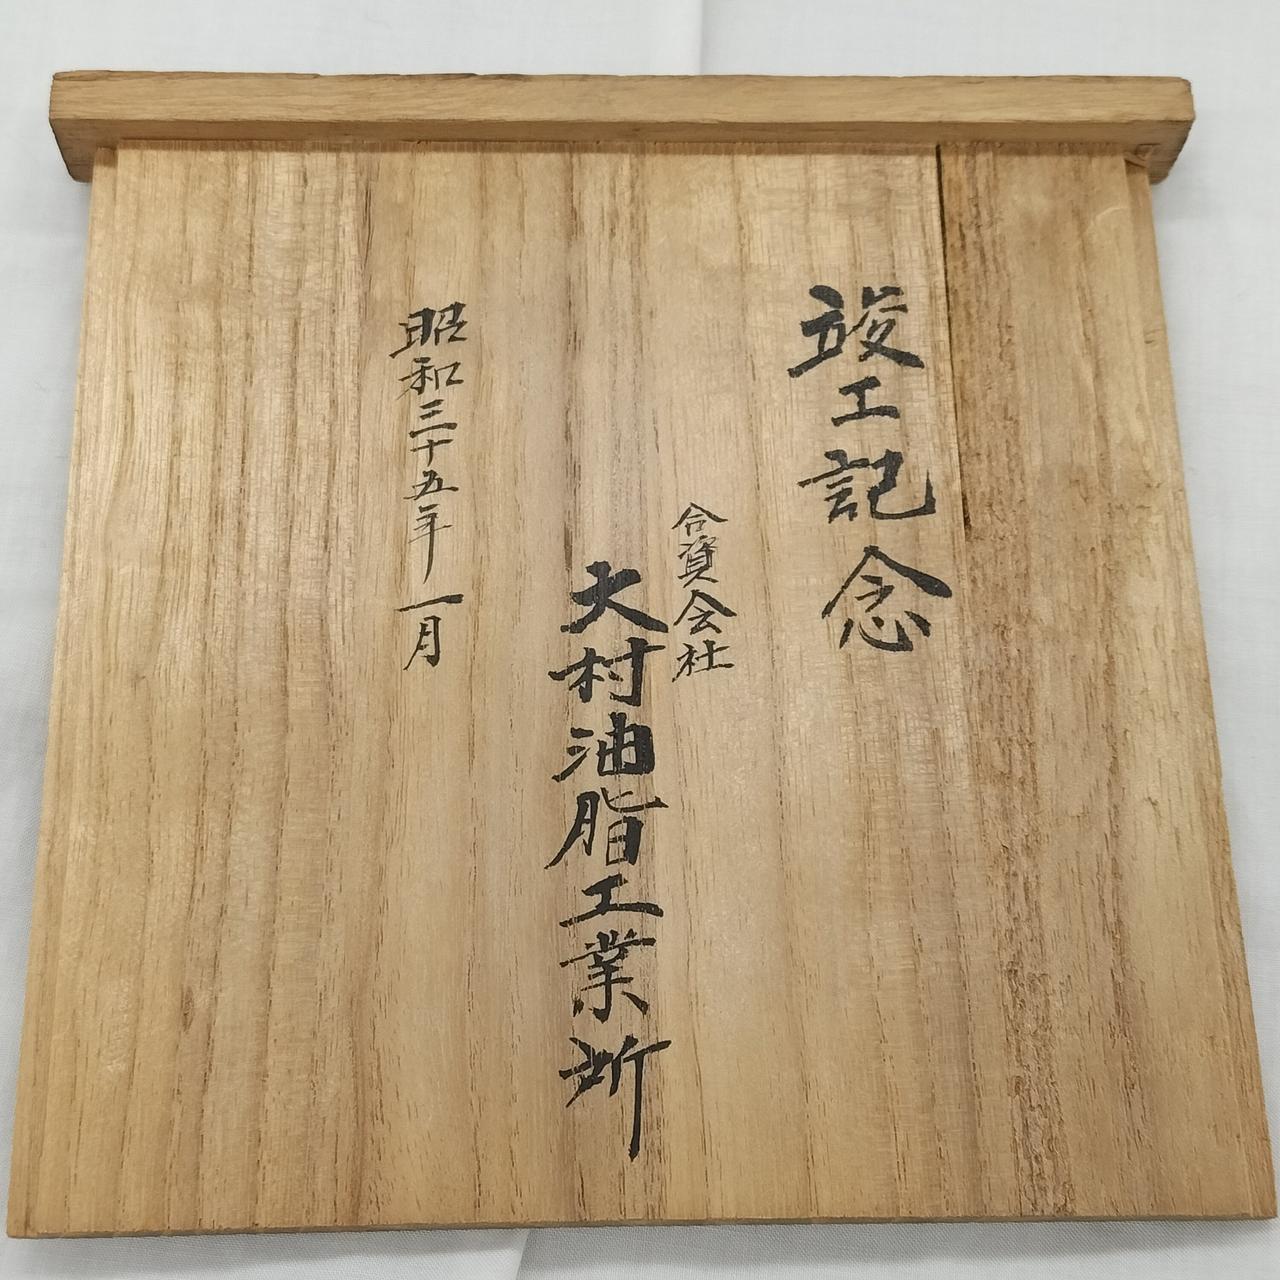 竣工記念
合資会社
大村油脂工業所
昭和三十五年一月